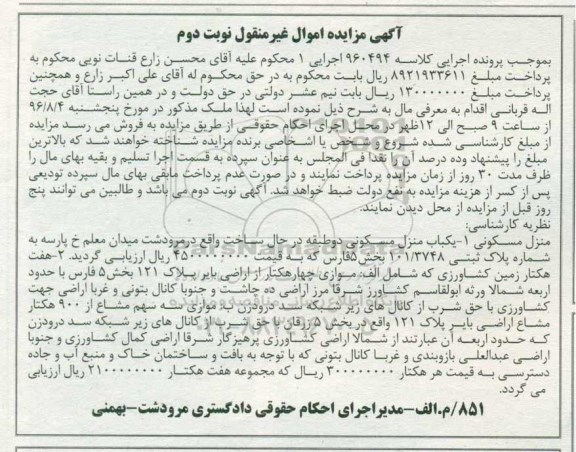 آگهی مزایده اموال غیرمنقول نوبت دوم
بموجب پرونده اجرایی کلاسه ۹۶۰۴۹۴ اجرایی ۱ محکوم علیه آقای محسن زارع قنات نویی محکوم به
پرداخت مبلغ ۸۹۲۱۹۳۳۶۱۱ ریال بابت محکوم به در حق محکوم له آقای علی اکبر زارع و همچنین
پرداخت مبلغ ۱۳۰۰۰۰۰۰۰ ریال بابت نیم عشر دولتی در حق دولت و در همین راستا آقای حجت
اله قربانی اقدام به معرفی مال به شرح ذیل نموده است لهذا ملک مذکور در مورخ پنجشنبه ۹۶/۸/۴
از ساعت ۹ صبح الی ۱۲ظهر در محل اجرای احکام حقوقی از طریق مزایده به فروش می رسد مزایده
از مبلغ کارشناسی شده شروع و شخص یا اشخاصی برنده مزایده شناخته خواهند شد که بالاترین
مبلغ را پیشنهاد وده درصد آن را نقدا فی المجلس به عنوان سپرده به قسمت اجرا تسلیم و بقیه بهای مال را
ظرف مدت ۳۰ روز از زمان مزایده پرداخت نمایند و در صورت عدم پرداخت مابقی بهای مال سپرده تودیعی
پس از کسر از هزینه مزایده به نفع دولت ضبط خواهد شد. آگهی نوبت دوم می باشد و طالبین می توانند پنج
روز قبل از مزایده از محل دیدن نمایند.
نظریه کارشناسی:
منزل مسکونی ۱-یکباب منزل مسکونی دوطبقه در حال ساخت واقع درمرودشت میدان معلم خ پارسه به
شماره پلاک ثبتی ۴۰۱/۳۷۴۸ بخش ۵فارس که به قیمت ۴۵۰۰۰۰۰۰۰۰ ریال ارزیابی گردید. ۲-هفت
هکتار زمین کشاورزی که شامل الف- موازی چهارهکتار از اراضی بایر پلاک ۱۲۱ بخش۵ فارس با حدود
اربعه شمالا ورثه ابولقاسم کشاورز شرقا مرز اراضی ده چاشت و جنوبا کانال بتونی و غربا اراضی جهت
کشاورزی با حق شرب از کانال های زیر شبکه سد درودزن ب- موازی سه سهم مشاع از ۹۰۰ هکتار
مشاع اراضی بایر پلاک ۱۲۱ واقع در بخش ۵ زرقان با حق شرب از کانال های زیر شبکه سد درودزن
که حدود اربعه آن عبارتند از شمالا اراضی کشاورزی پرهیزگار شرقا اراضی کمال کشاورزی و جنوبا
اراضی عبدالعلی بازوبندی و غربا کانال بتونی که با توجه به بافت و ساختمان خاک و منبع آب و جاده
دسترسی به قیمت هر هکتار ۳۰۰۰۰۰۰۰۰ ریال که مجموعه هفت هکتار ۲۱۰۰۰۰۰۰۰۰ ریال ارزیابی
می گردد.
۸۵۱/م.الف-مدیراجرای احکام حقوقی دادگستری مرودشت-بهمنی